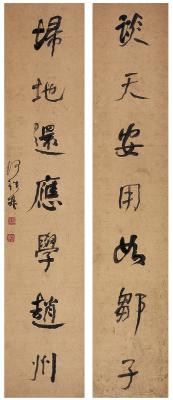 談天安用如鄒子
埽地還應學趙州
何紹基